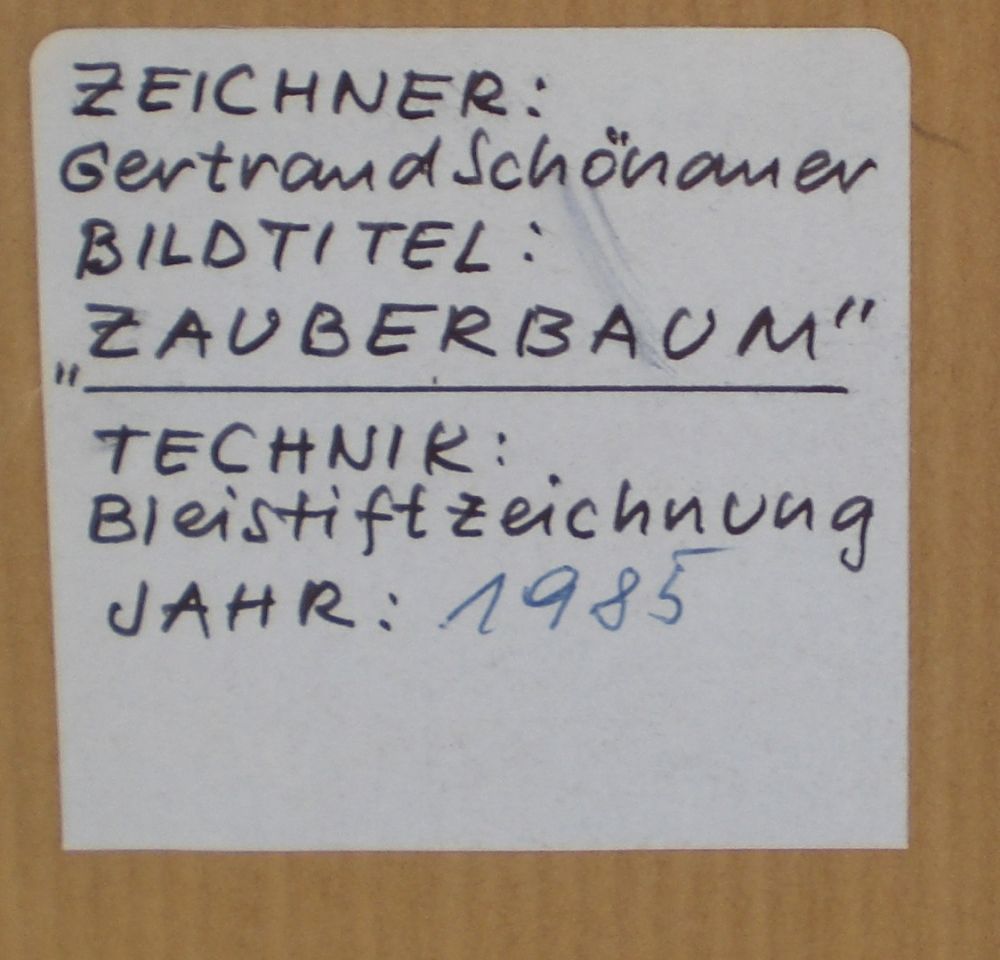 ZEICHNER:
Gertraud Schönauer
BILDTITEL:
„ZAUBERBAUM“
TECHNIK:
Bleistiftzeichnung
JAHR: 1985